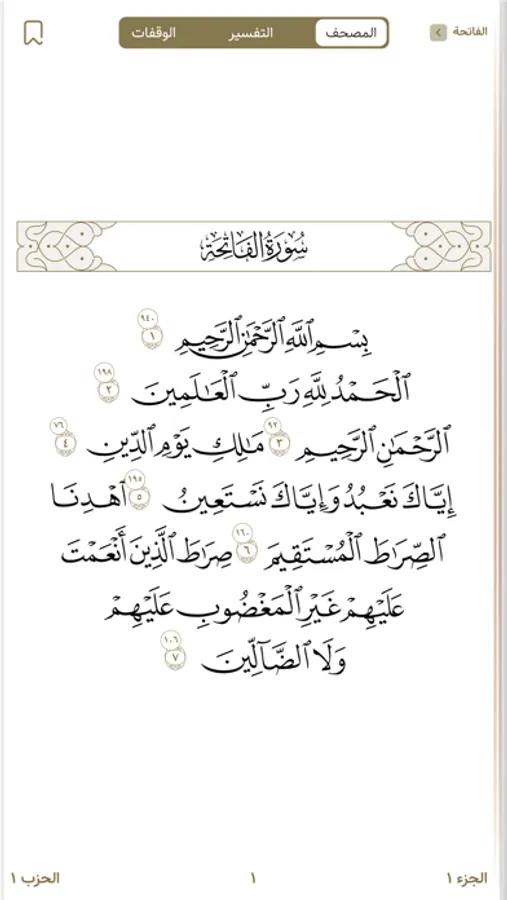 الفاتحة
المصحف التفسير الوقفات
سُورَةُ الْفَاتِحَةِ
بِسْمِ ٱللَّهِ ٱلرَّحْمَٰنِ ٱلرَّحِيمِ ١ ٩٤٠
ٱلْحَمْدُ لِلَّهِ رَبِّ ٱلْعَٰلَمِينَ ٢ ١٩٨
ٱلرَّحْمَٰنِ ٱلرَّحِيمِ ٣ ٩٢ مَٰلِكِ يَوْمِ ٱلدِّينِ ٤ ٧٦
إِيَّاكَ نَعْبُدُ وَإِيَّاكَ نَسْتَعِينُ ٥ ١٩٥ ٱهْدِنَا
ٱلصِّرَٰطَ ٱلْمُسْتَقِيمَ ٦ ١٦٠ صِرَٰطَ ٱلَّذِينَ أَنْعَمْتَ
عَلَيْهِمْ غَيْرِ ٱلْمَغْضُوبِ عَلَيْهِمْ
وَلَا ٱلضَّآلِّينَ ٧ ١٠٦
الجزء ١ ١ الحزب ١